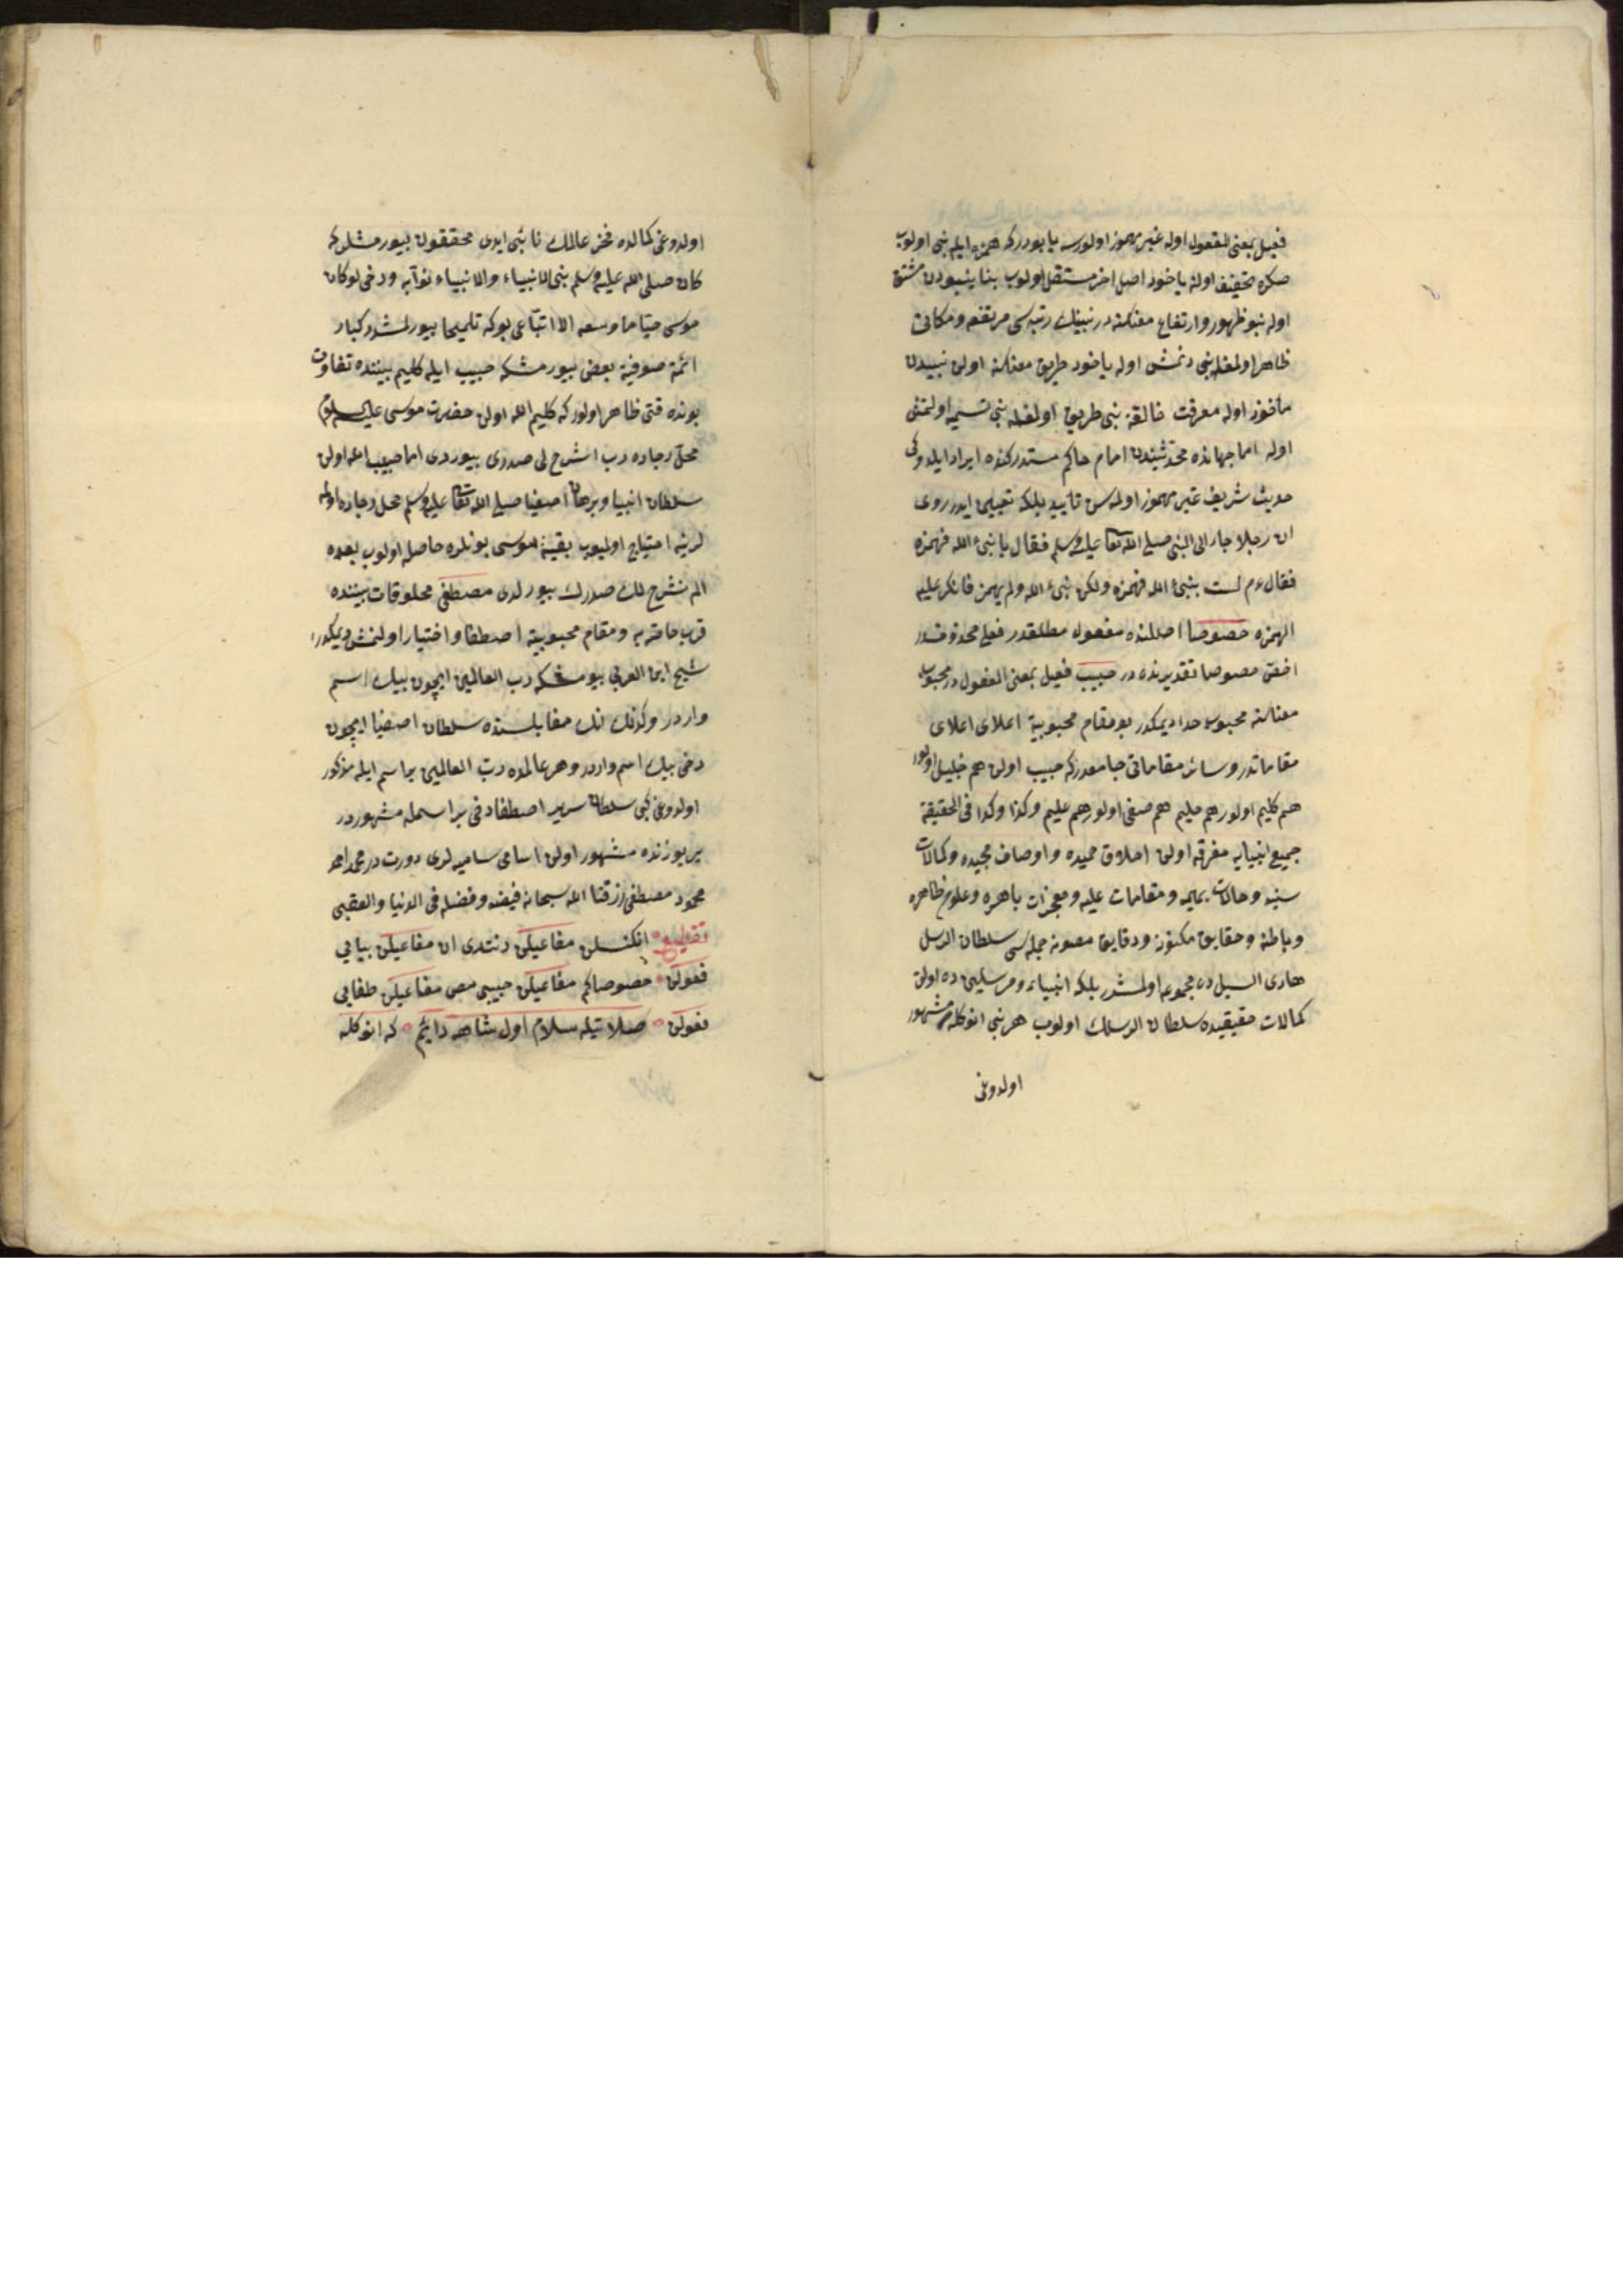 فعیل بمعنی المفعول اوله غیر مهموز اولورسه یا بودر که همزه ایله نبئ اولوب
صکره تخفیف اولنه یاخود اصل اخر مستقل اولوب بنا ینبودن مشتق
اوله نبو ظهور و ارتفاع معناسنه در نبینك رتبه سی مرتفعه و مکانی
ظاهر اولمغله نبی دنمش اوله یاخود طریق معناسنه اولن نبیدن
مأخوذ اوله معرفت خالقه نبی طریق اولمغله نبی تسمیه اولنمش
اوله اما جهابذه محدثیندن امام حاکم مستدرکنده ایراد ایلدوکی
حدیث شریف غیر مهموز اولمسن تأیید بلکه تعیین ایدر روی
ان رجلا جاء الی النبی صلی الله تعا علیه وسلم فقال یا نبیء الله فهمزه
فقال ءم لست بنبیء الله فهمزه ولکن نبیء الله ولم یهمز فانکر علیه
الهمزه خصوصا اصلنده مفعول مطلقدر فعلی محذوفدر
اخص خصوصا تقدیرنده در حبیب فعیل بمعنی المفعول در محبوب
معناسنه محبوب خدا دیمکدر بو مقام محبوبیة اعلای اعلای
مقاماتدر و سائر مقاماتی جامعدر که حبیب اولن هم خلیل اولور
هم کلیم اولور هم حلیم هم صفی اولور هم علیم وکذا وکذا فی الحقیقة
جمیع انبیایه مفرقه اولن اخلاق حمیده و اوصاف مجیده و کمالات
سنیه و حالات بهیه و مقامات علیه و معجزات باهره و علوم ظاهره
و باطنه و حقایق مکنونه و دقایق مصونه جمله سی سلطان الرسل
هادی السبل ده مجموعه اولمشدر بلکه انبیاء و مرسلین ده اولن
کمالات حقیقیده سلطان الرسلك اولوب هر نبی انوکله مشهور
اولدوغی
اولدوغی کمالده فخر عالمك نائبی ایدی محققون بیورمشلر که
کان صلی الله علیه وسلم نبی الانبیاء والانبیاء نوابه ودخی لو کان
موسی حیّا ما وسعه الا اتباعی بوکه تلمیحا بیورلمشدر کبار
ائمه صوفیه بعضی بیورمشکه حبیب ایله کلیم بیننده تفاوت
بونده قتی ظاهر اولور که کلیم الله اولن حضرت موسی علیه السلام
محل رجاده رب اشرح لی صدری بیوردی اما حبیب الله اولن
سلطان انبیا و برهان اصفیا صلی الله تعا علیه وسلم محل رجاده اولمه
لرینه احتیاج اولمیوب بقیة موسی بونلره حاصل اولوب بعده
الم نشرح لك صدرك بیورلدی مصطفی مخلوقات بیننده
قرب خاصه یه و مقام محبوبیته اصطفا و اختیار اولنمش دیمکدر
شیخ ابن العربی بیورمشکه رب العالمین ایچون بیك اسم
واردر وکذلك انك مقابلسنده سلطان اصفیا ایچون
دخی بیك اسم واردر و هر عالمده رب العالمین بر اسم ایله مذکور
اولدوغی کبی سلطان سریر اصطفا دخی بر اسمله مشهوردر
یر یوزنده مشهور اولن اسامی سامیه لری دورت در محمد احمد
محمود مصطفی رزقنا الله سبحانه فیضه وفضله فی الدنیا والعقبی
تقطیع انکنسلن مفاعیلن دنتدی ان مفاعیلن بیابی
فعولن خصوصاکم مفاعیلن حبیبی مص مفاعیلن طفابی
فعولن صلاتیله سلام اول شاهه دائم که انوکله